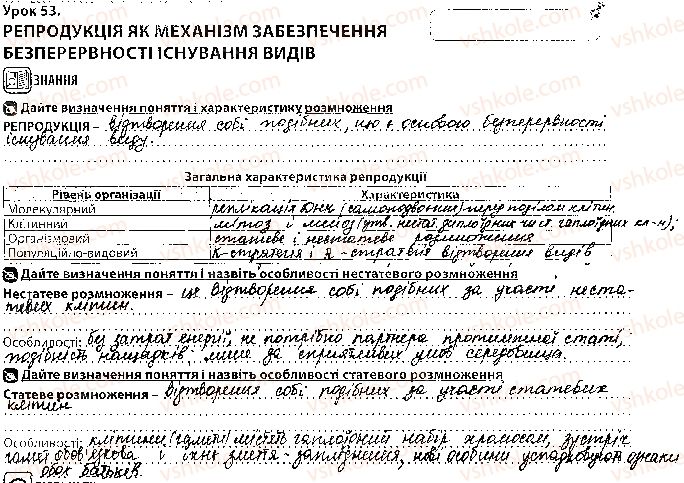 Урок 53.
РЕПРОДУКЦІЯ ЯК МЕХАНІЗМ ЗАБЕЗПЕЧЕННЯ
БЕЗПЕРЕРВНОСТІ ІСНУВАННЯ ВИДІВ
ЗНАННЯ
Дайте визначення поняття і характеристику розмноження
РЕПРОДУКЦІЯ – відтворення собі подібних, що є основою безперервності
існування виду.
Загальна характеристика репродукції
Рівень організації Характеристика
Молекулярний реплікація ДНК (самоподвоєння) перед поділом клітин
Клітинний мітоз й мейоз (утв. нестат. диплоїдних чи ст. гаплоїдних кл-н);
Організмовий статеве і нестатеве розмноження
Популяційно-видовий К-стратегія і r-стратегія відтворення видів
Дайте визначення поняття і назвіть особливості нестатевого розмноження
Нестатеве розмноження – це відтворення собі подібних за участі неста-
тевих клітин.
Особливості: без затрат енергії, не потрібно партнера протилежної статі,
подібність нащадків лише за сприятливих умов середовища.
Дайте визначення поняття і назвіть особливості статевого розмноження
Статеве розмноження – відтворення собі подібних за участі статевих
клітин
Особливості: клітини (гамети) містять гаплоїдний набір хромосом, зустріч
гамет обов'язкова і їхнє злиття - запліднення, нові особини успадковують ознаки
обох батьків
vshkole.com